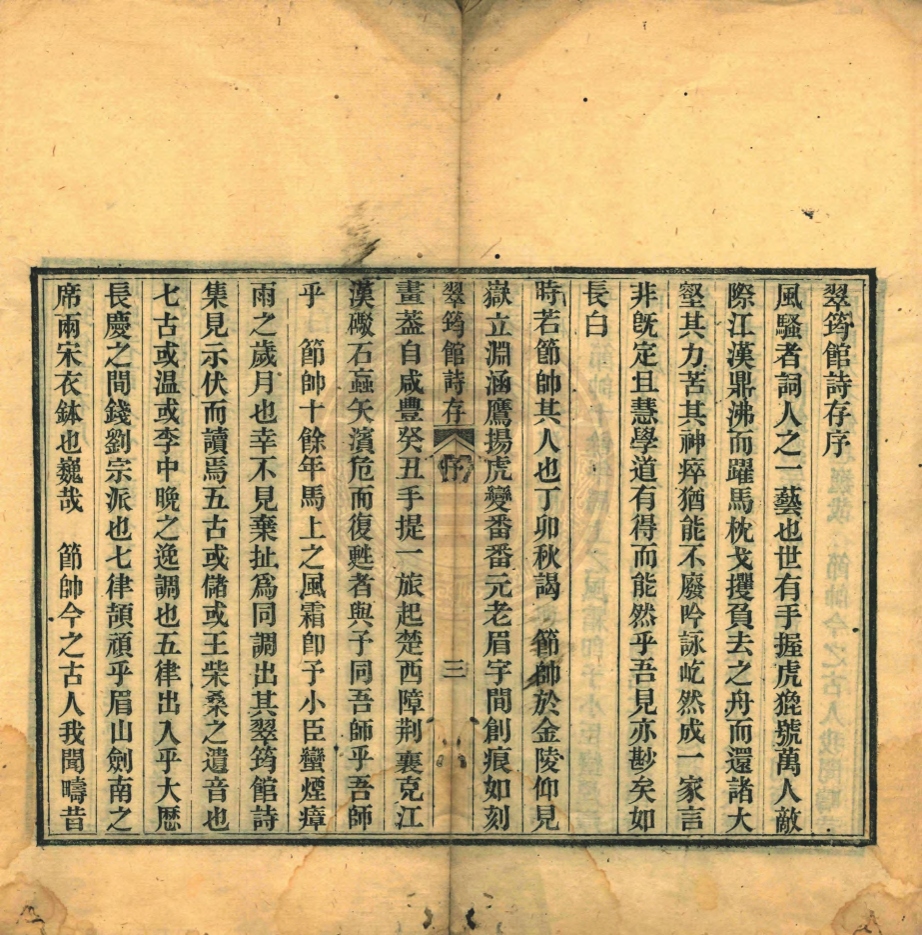 翠筠館詩存序
風騷者詞人之一藝也世有手握虎貔號萬人敵
際江漢鼎沸而躍馬枕戈攫負去之舟而還諸大
壑其力苦其神瘁猶能不廢吟詠屹然成一家言
非旣定且慧學道有得而能然乎吾見亦尠矣如
長白
時若節帥其人也丁卯秋謁 節帥於金陵仰見
嶽立淵涵鷹揚虎變番番元老眉宇間創痕如刻
翠筠館詩存 序 三
畫蓋自咸豐癸丑手提一旅起楚西障荆襄克江
漢礮石蝱矢濱危而復甦者與予同吾師乎吾師
乎 節帥十餘年馬上之風霜卽予小臣蠻煙瘴
雨之歲月也幸不見棄扯爲同調出其翠筠館詩
集見示伏而讀焉五古或儲或王柴桑之遺音也
七古或温或李中晚之逸調也五律出入乎大厯
長慶之間錢劉宗派也七律頡頏乎眉山劍南之
席兩宋衣鉢也巍哉 節帥今之古人我聞疇昔